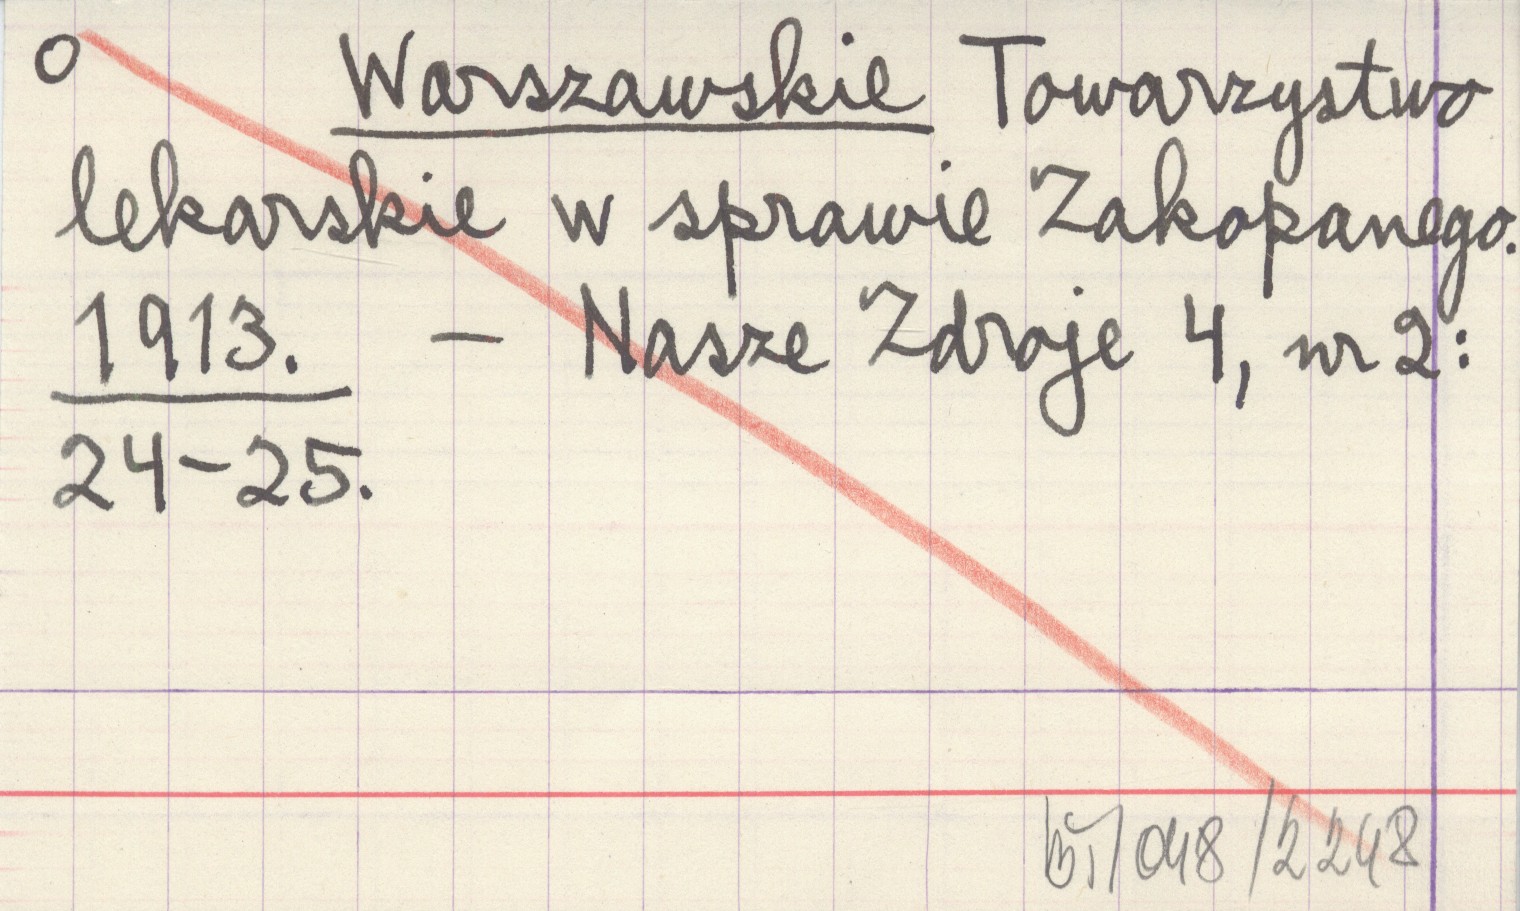 o Warszawskie Towarzystwo
lekarskie w sprawie Zakopanego.
1913. - Nasze Zdroje 4, nr 2:
24-25.
048/2248